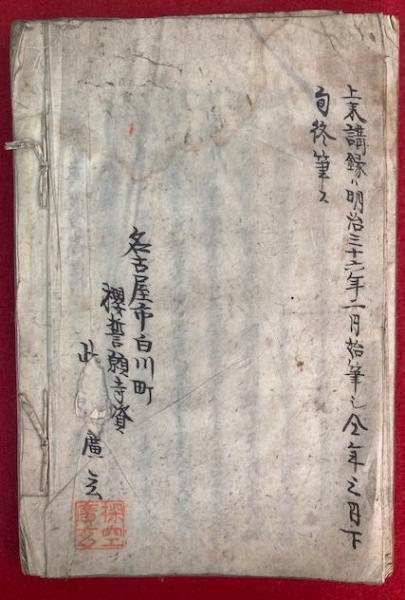 上来講録ハ明治三十六年一月始筆シ仝年三月下
旬終筆ス
名古屋市白川町
櫻誓願寺資
廣玄
探空
廣玄